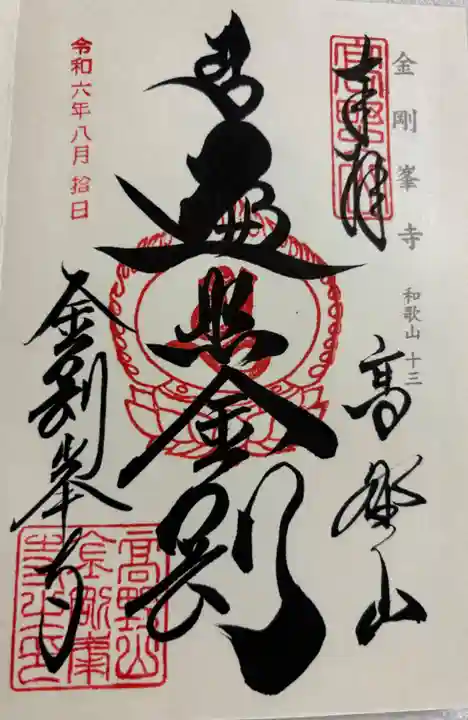 金剛峯寺
和歌山 十三
奉拝
高野山
南無
遍照金剛
令和六年八月拾日
金剛峯寺
高野山
金剛峯
寺之印